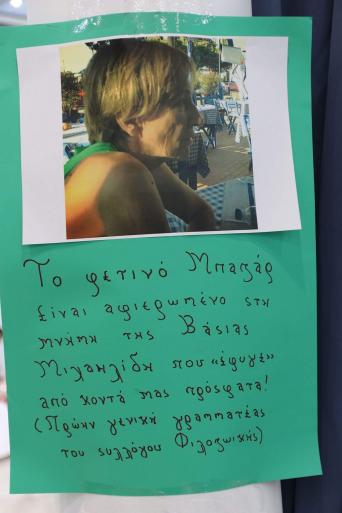 Το φετινό Μπαζάρ
είναι αφιερωμένο στη
μνήμη της Βάσιας
Μιλαηλίδη που «έφυγε»
από κοντά μας πρόσφατα!
(Πρώην γενική γραμματέας
του συλλόγου Φιλοζωικής)